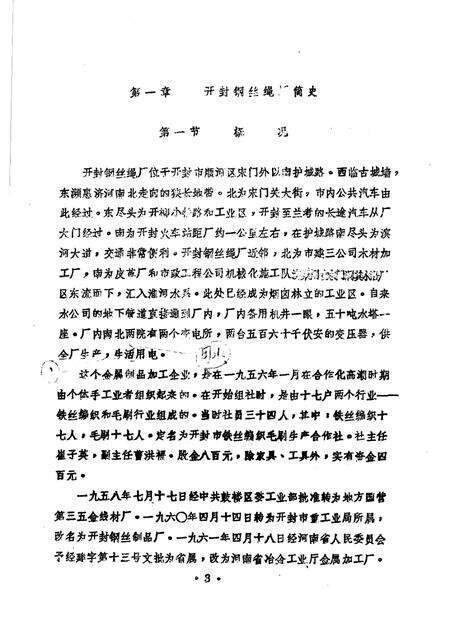 第一章 开封钢丝绳厂简史
第一节 概 况
开封钢丝绳厂位于开封市顺河区宋门外以南护城路。西临古城墙，
东濒惠济河南北走向的狭长地带。北为宋门关大街，市内公共汽车由
此经过。东尽头为开柳小铁路和工业区，开封至兰考的长途汽车从厂
大门经过。南为开封火车站距厂约一公里左右，在护城路南尽头为滨
河大道，交通非常便利。开封钢丝绳厂近邻，北为市建三公司木材加
工厂，南为皮革厂和市政工程公司机械化施工队
区东流而下，汇入淮河水系。此处已经成为烟囱林立的工业区。自来
水公司的地下管道直接通到厂内，厂内备用机井一眼，五十吨水塔一
座。厂内南北两院有两个变电所，两台五百六十千伏安的变压器，供
全厂生产，生活用电。
这个金属制品加工企业，是在一九五六年一月在合作化高潮时期
由个体手工业者组织起来的。在开始组社时，是由十七户两个行业——
铁丝编织和毛刷行业组成的。当时社员三十四人，其中：铁丝编织十
七人，毛刷十七人。定名为开封市铁丝编织毛刷生产合作社。社主任
崔子英，副主任曹洪福。股金八百元，除家具、工具外，实有资金四
百元。
一九五八年七月十七日经中共鼓楼区委工业部批准转为地方国营
第三五金线材厂。一九六〇年四月十四日转为开封市重工业局所属，
改名为开封钢丝制品厂。一九六一年四月十八日经河南省人民委员会
予经 字第十三号文批为省属，改为河南省冶金工业厅金属加工厂。
·3·